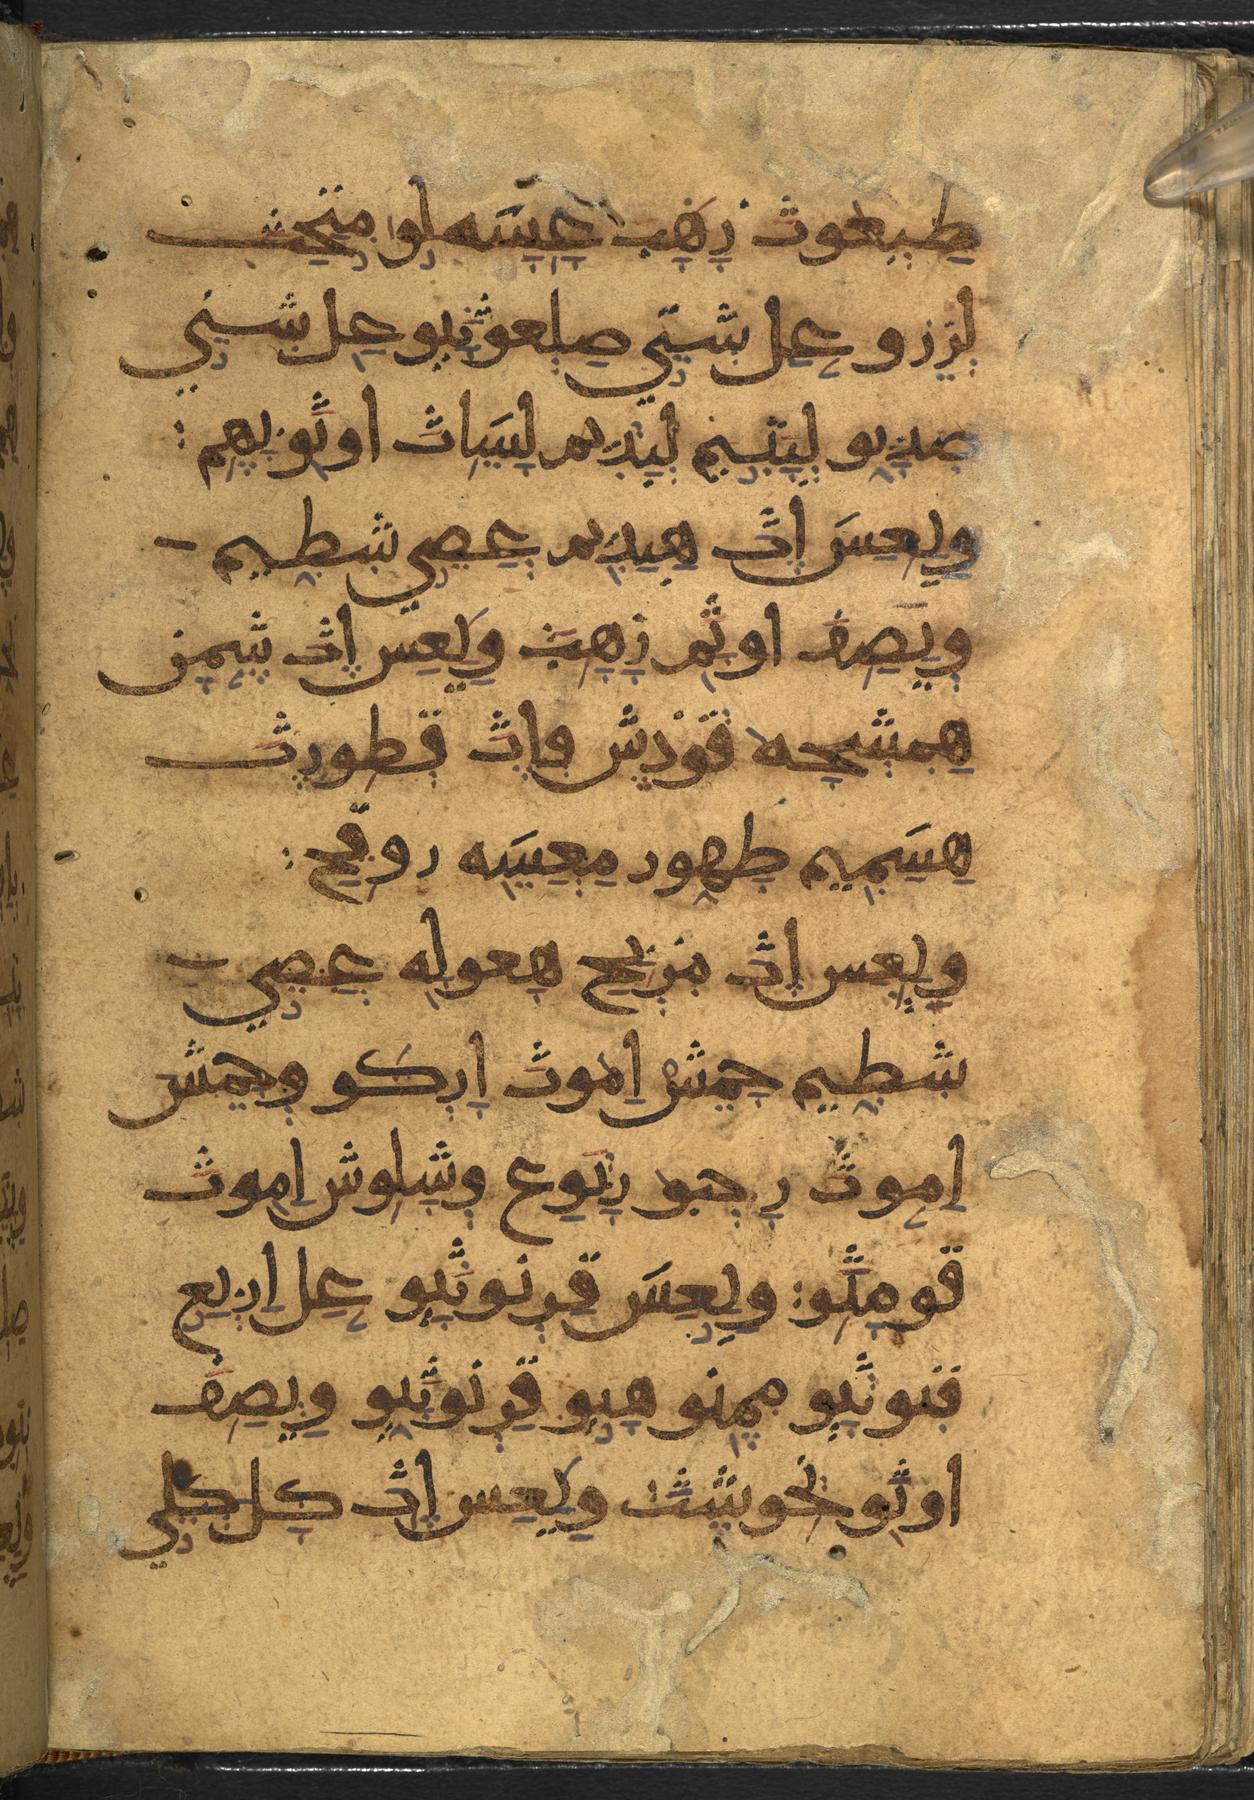 طبعوث زهب عسه لو متحث
لزرو عل شتي صلعوثيو عل شني
صديو لبتيم لبديم لساث اوثو بهم :
ويعس اث هبديم عصي شطيم
ويصف اوثم زهب ويعس اث شمن
همشحه قودش واث قطورث
هسميم طهور معسه روقح :
ويعس اث مزبح هعوله عصي
شطيم حمش اموث اركو وحمش
اموث رحبو ربوع وشلوش اموث
قومثو : ويعس قرنوثيو عل اربع
فنوثيو ممنو هيو قرنوثيو ويصف
اوثو نحوشث ويعس اث كل كلي